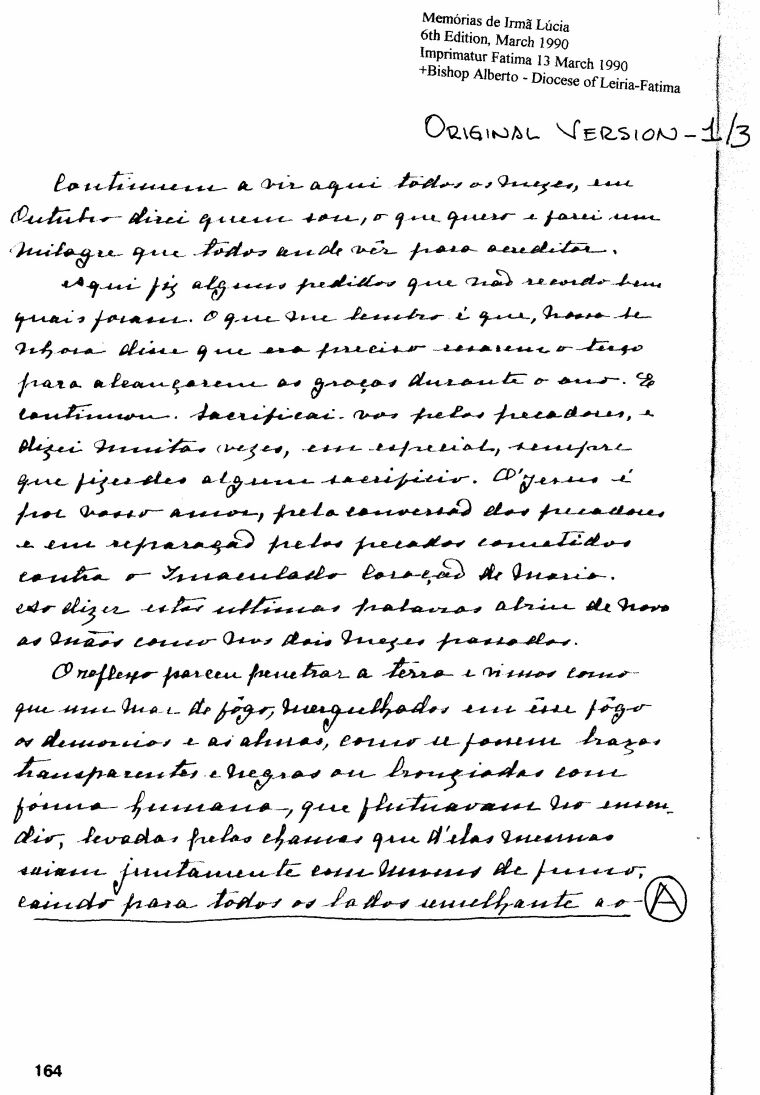 Memórias de Irmã Lúcia
6th Edition, March 1990
Imprimatur Fatima 13 March 1990
+Bishop Alberto - Diocese of Leiria-Fatima
ORIGINAL VERSION - 1/3
Continuem a vir aqui todos os mezes, em
Outubro direi quem sou, o que quero e farei um
milagre que todos ande vêr para acreditar.
Aqui fiz alguns pedidos que não recordo bem
quais foram. O que me lembro é que, Nossa Se
nhora disse que era preciso resarem o terço
para alcançarem as graças durante o ano. E
continuou. Sacrificai-vos pelos pecadores, e
dizei muitas vezes, em especial, sempre
que fizerdes algum sacrificio. O' Jesus é
por vosso amor, pela conversão dos pecadores
e em reparação pelos pecados cometidos
contra o Imaculado Coração de Maria.
Ao dizer estas ultimas palavras abriu de novo
as mãos como nos dois mezes passados.
O reflexo pareceu penetrar a terra e vimos como
que um mar de fôgo, mergulhados em êsse fôgo
os demonios e as almas, como se fossem brazas
transparentes e negras ou bronziadas com
fórma humana, que flutuavam no encen-
dio, levadas pelas chamas que d'elas mesmas
saiam juntamente com nuvens de fumo,
caindo para todos os lados semelhante ao
A
164